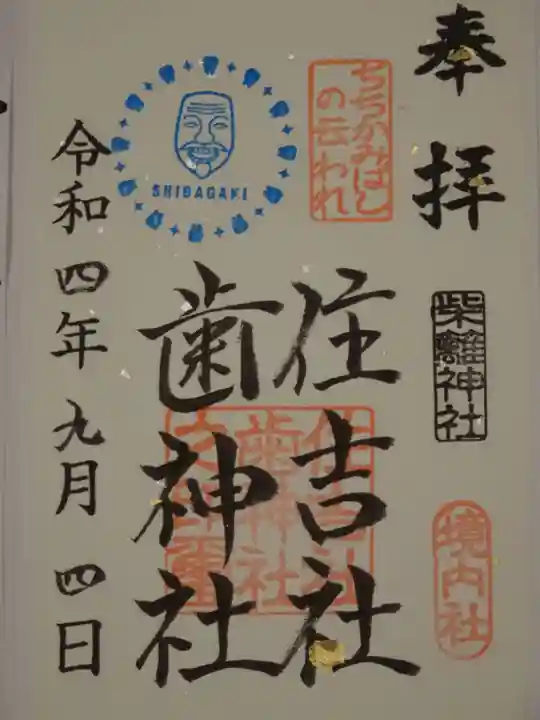 奉拝
柴籬神社
境内社
ちぢかみはし
の云われ
住吉社
歯神社
SHIBAGAKI
住吉社
歯神社
令和四年九月四日